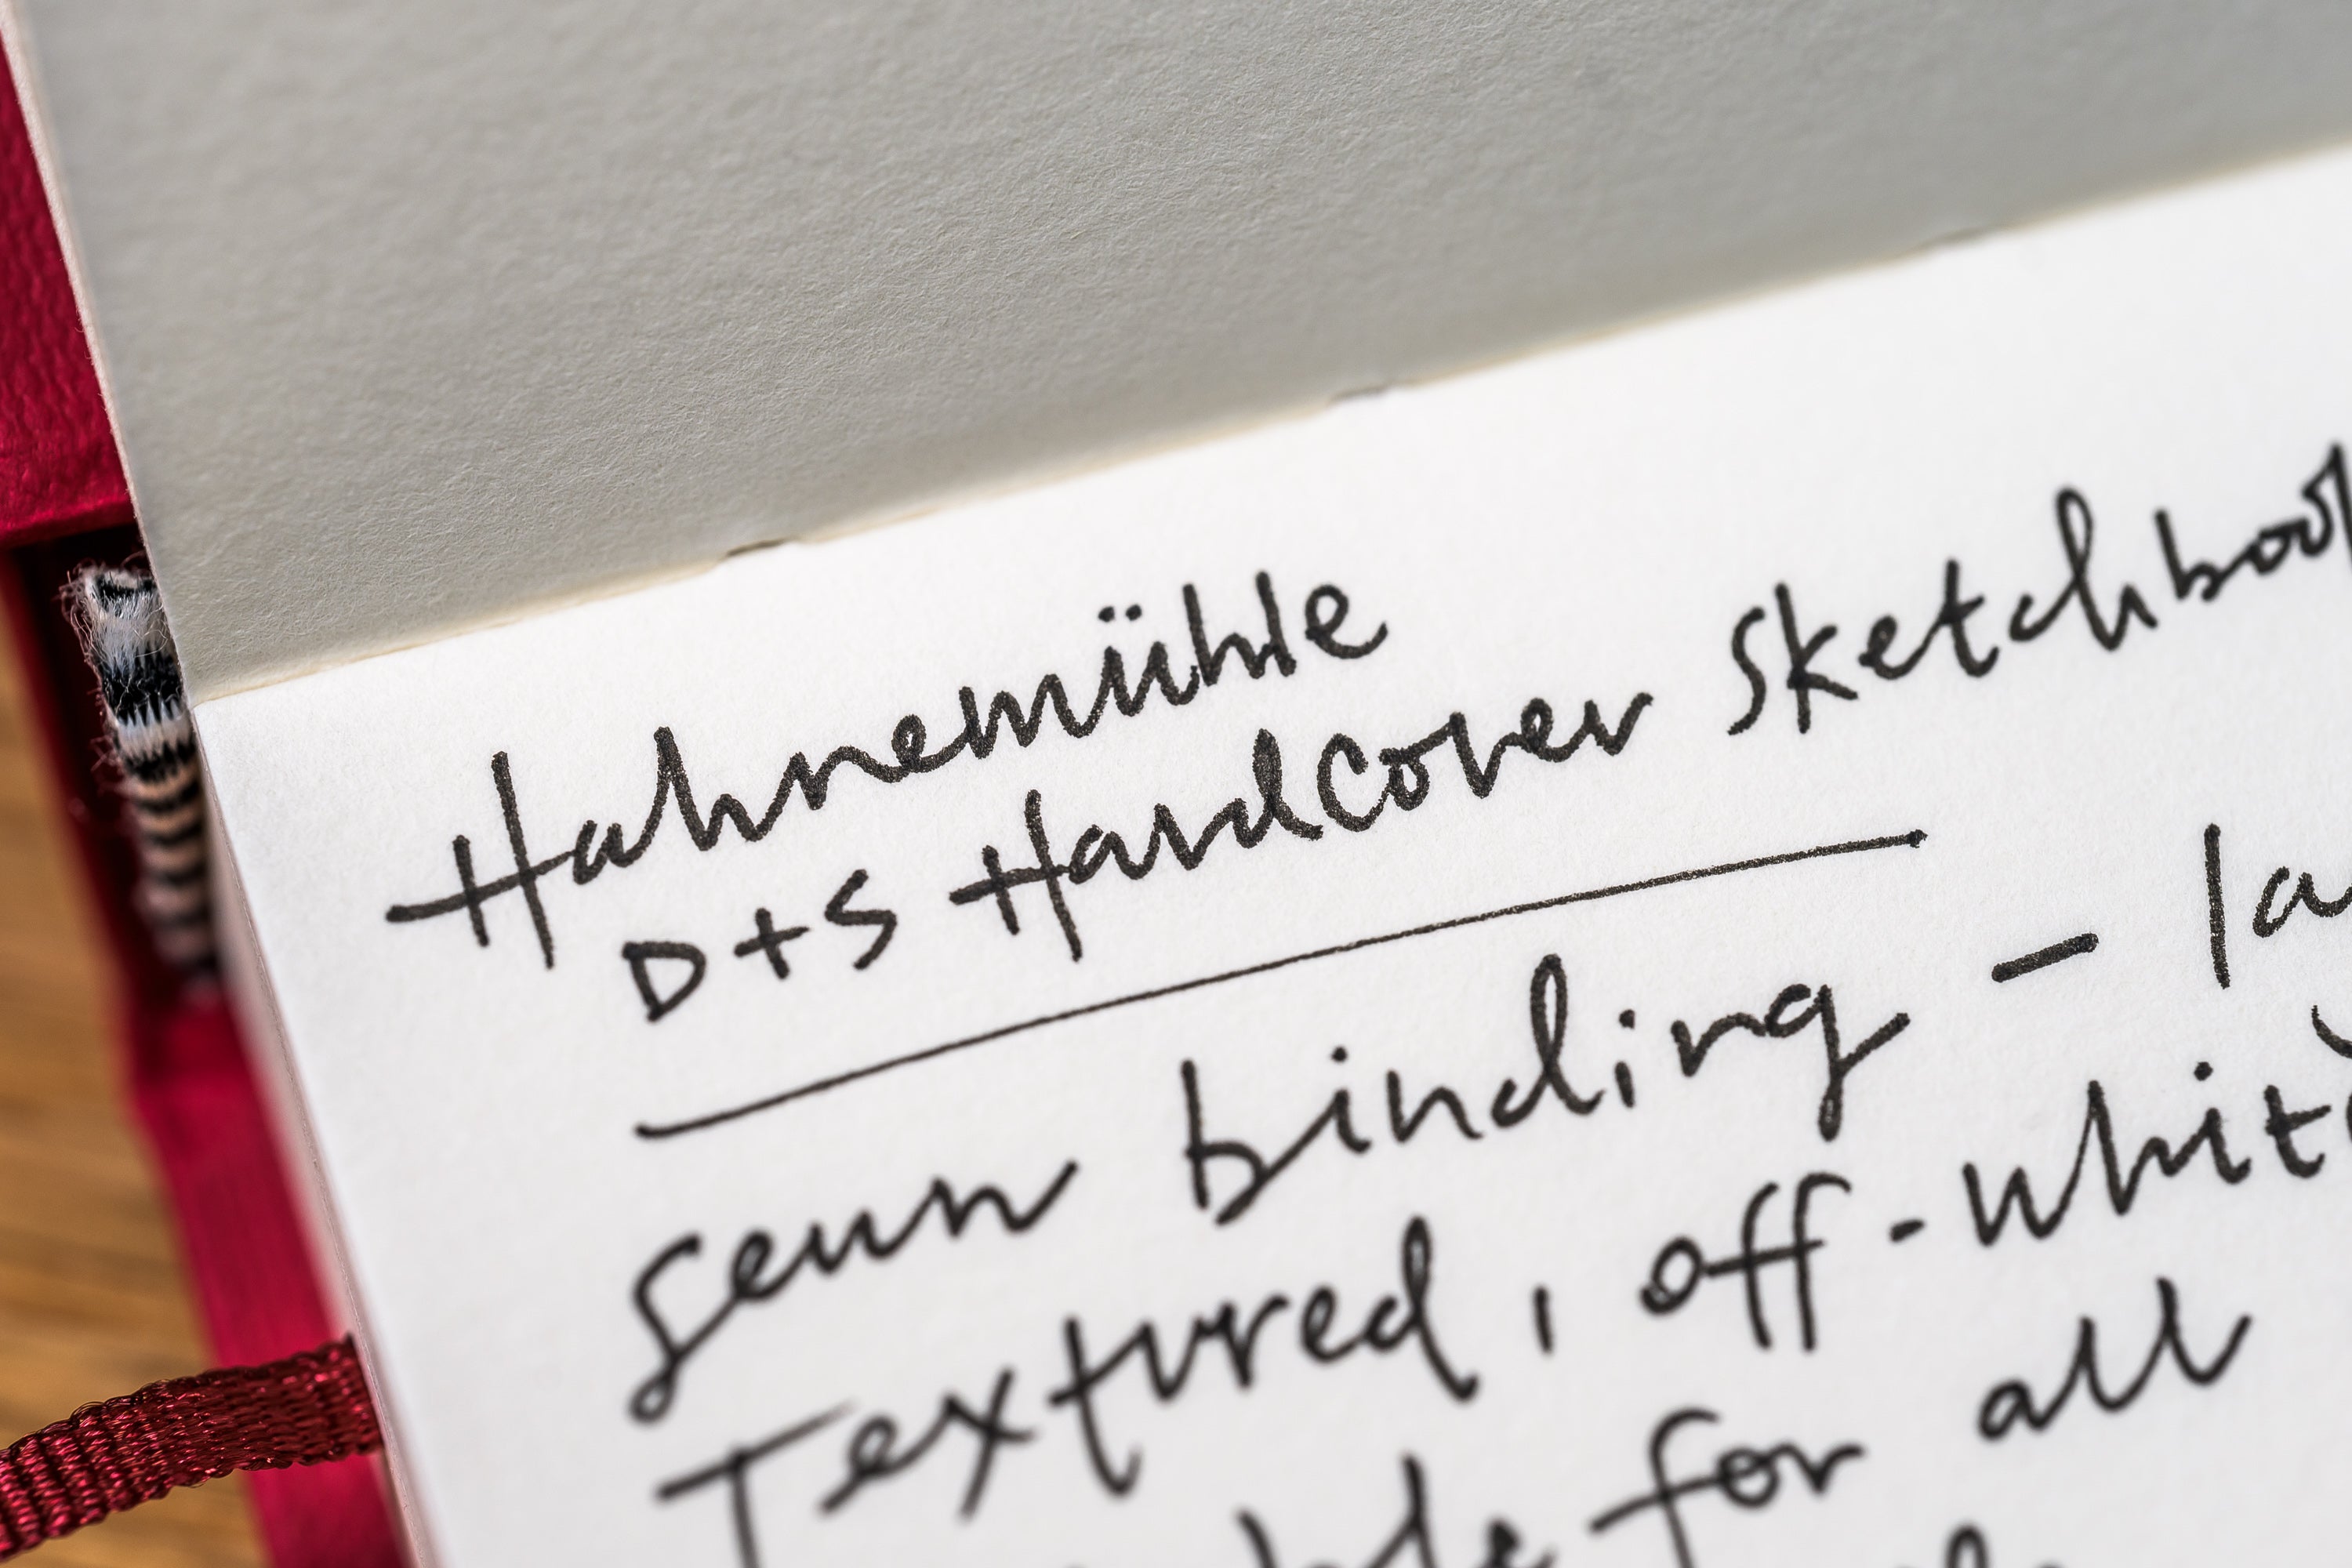 Hahnemühle
D+S Hardcover Sketchbook
sewn binding – la
Textured, off-white
for all